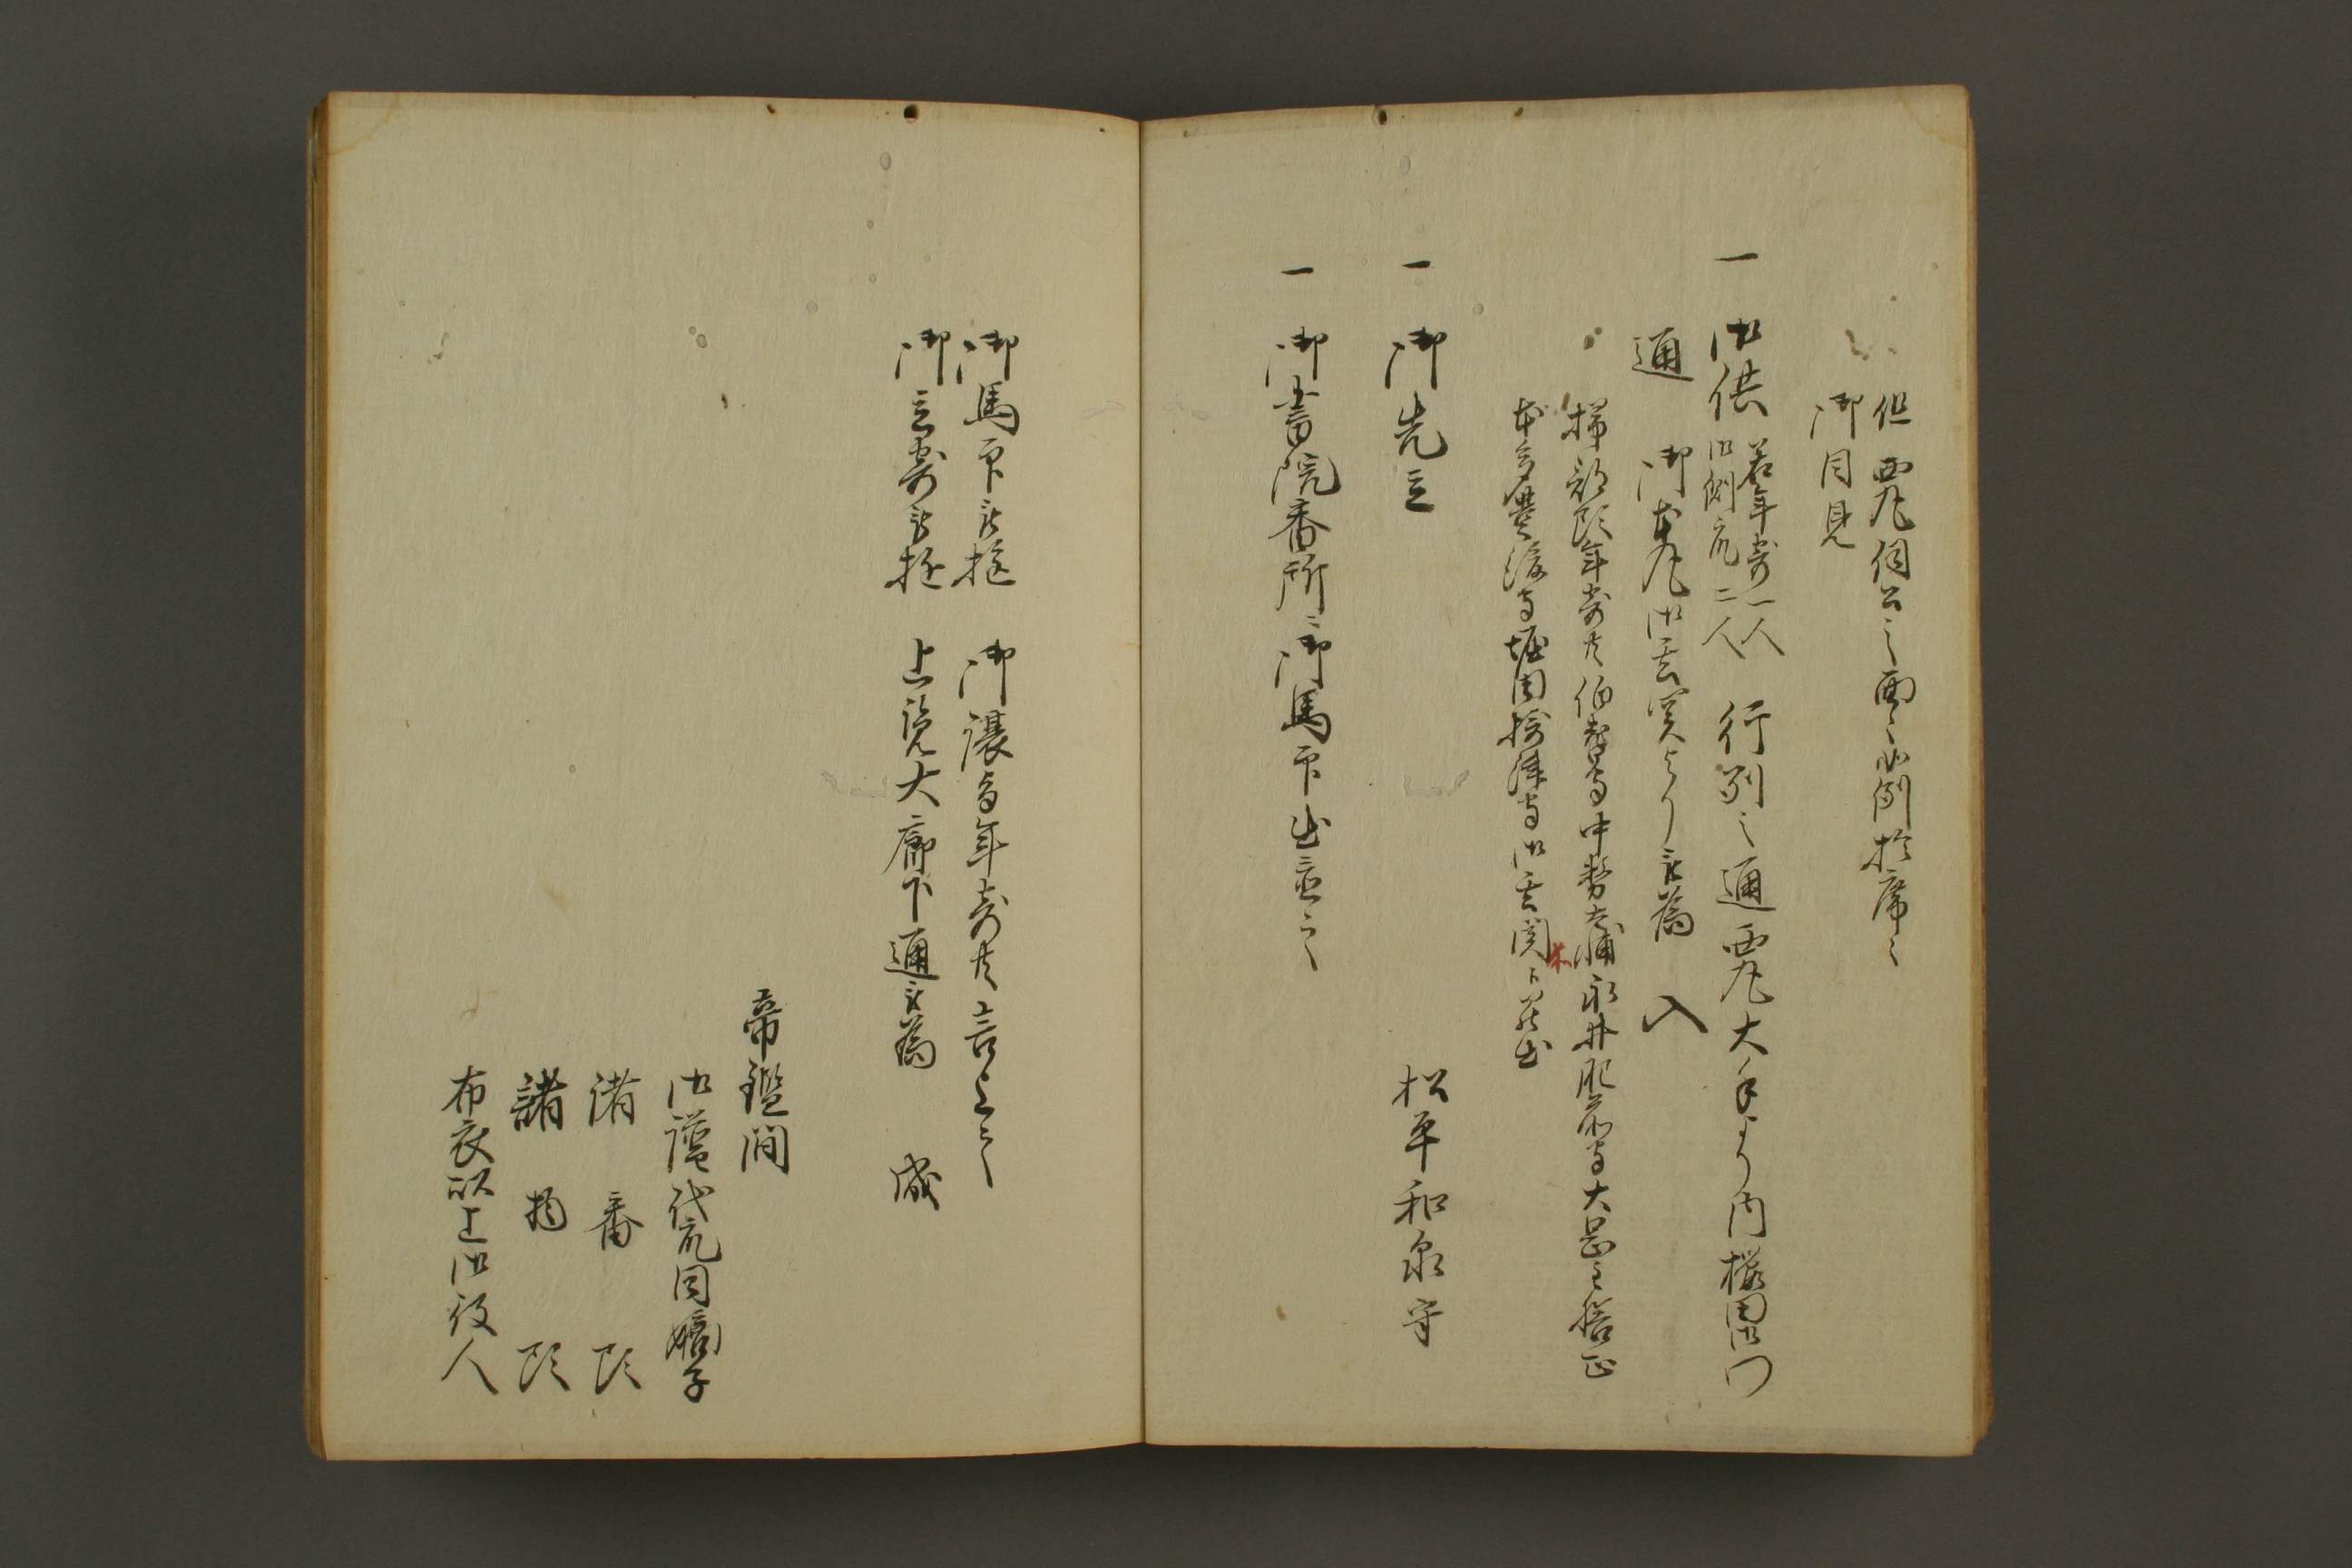 但西丸伺公之面々如例於席々
御目見
一 御供 若年寄一人 御側衆二人 行列之通西丸大手より内桜田御門
通 御本丸御玄関より被為 入
掃部頭年寄共伯耆守中務大輔永井肥前守大岡主膳正
本多豊後守堀田摂津守御玄関江罷出
一 御先立 松平和泉守
一 御書院番所ニ御馬印出置之
御馬印被披 御譲与年寄共言上之
御立寄被披 上覧大廊下通被為 成
帝鑑間
御譜代衆同嫡子
諸番頭
諸物頭
布衣以上御役人